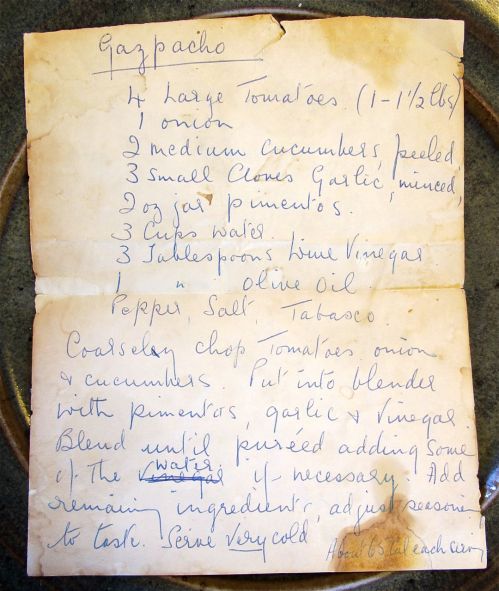 Gazpacho
4 Large Tomatoes (1-1½ lbs)
1 onion
2 medium cucumbers, peeled
3 small Cloves Garlic, minced,
2 oz jar pimentos.
3 Cups water.
3 Tablespoons Wine Vinegar
1 " Olive Oil.
Pepper, Salt, Tabasco.
Coarsely chop Tomatoes, onion
& cucumbers. Put into blender
with pimentos, garlic & Vinegar.
Blend until puréed adding some
of the vinegar water if necessary. Add
remaining ingredients, adjust seasoning
to taste. Serve very cold
About 65 Cal each serving